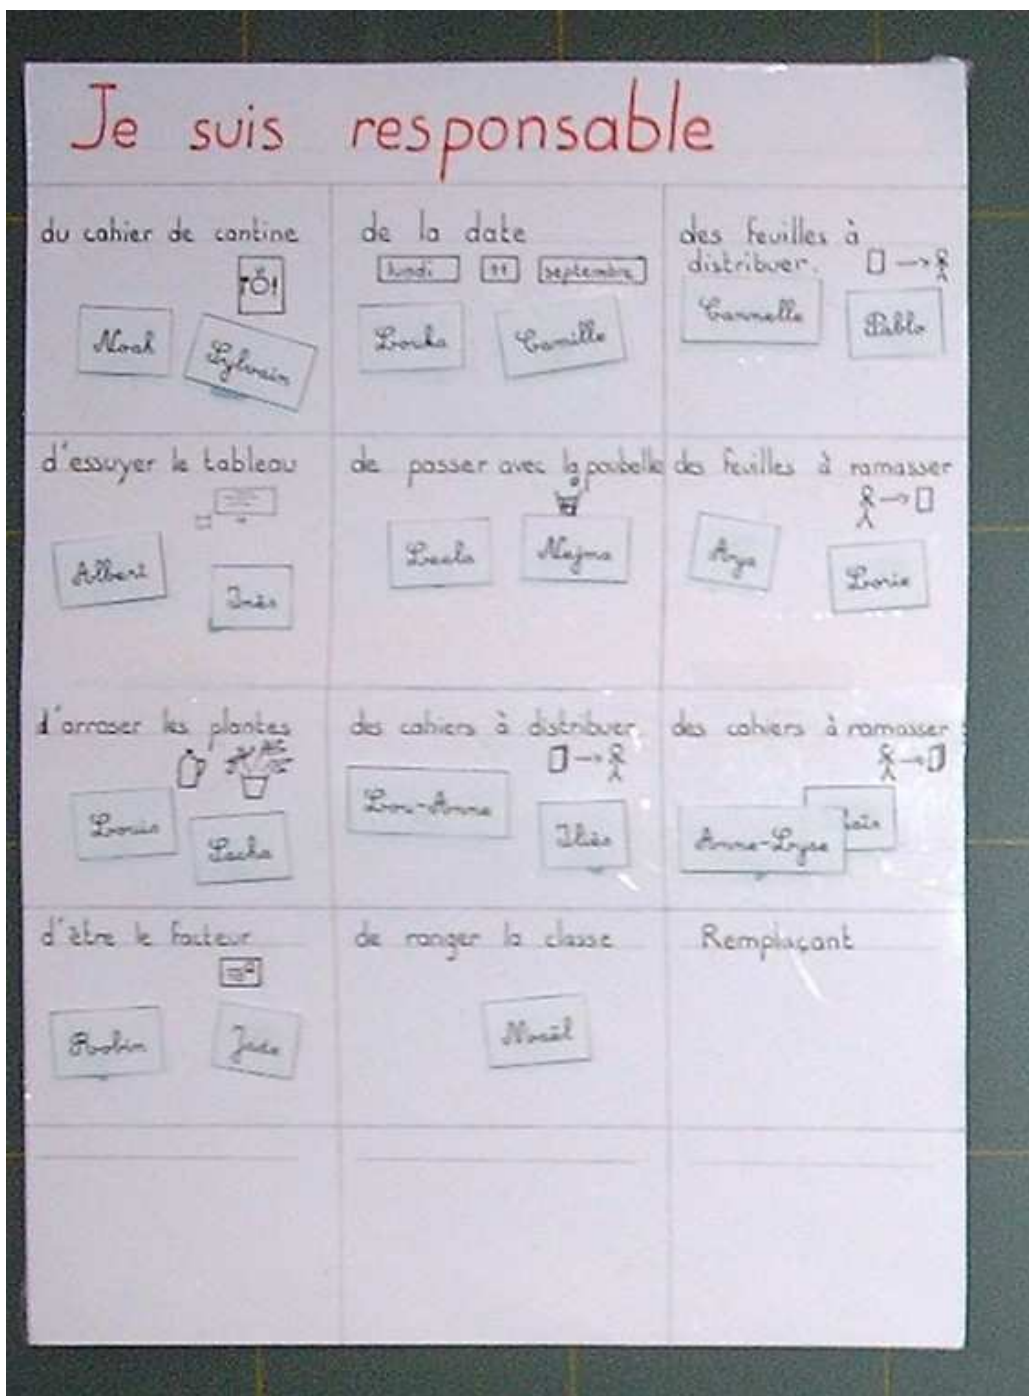 Je suis responsable
du cahier de cantine
Noah
Sylvain
de la date
lundi 11 septembre
Louka
Camille
des feuilles à
distribuer.
Cannelle
Pablo
d'essuyer le tableau
Albert
Inès
de passer avec la poubelle
Leela
Najma
des feuilles à ramasser
Arya
Lorie
d'arroser les plantes
Louis
Sacha
des cahiers à distribuer.
Lou-Anne
Iliès
des cahiers à ramasser
Anne-Lyse
d'être le facteur
Robin
Jade
de ranger la classe
Remplaçant